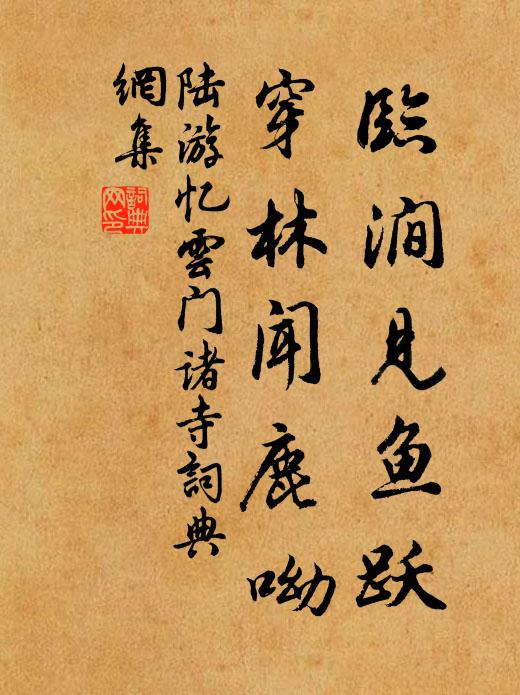 臨澗見鱼跃
穿林闻鹿呦
陆游忆雲门诸寺詞典
網集
詞典
网印